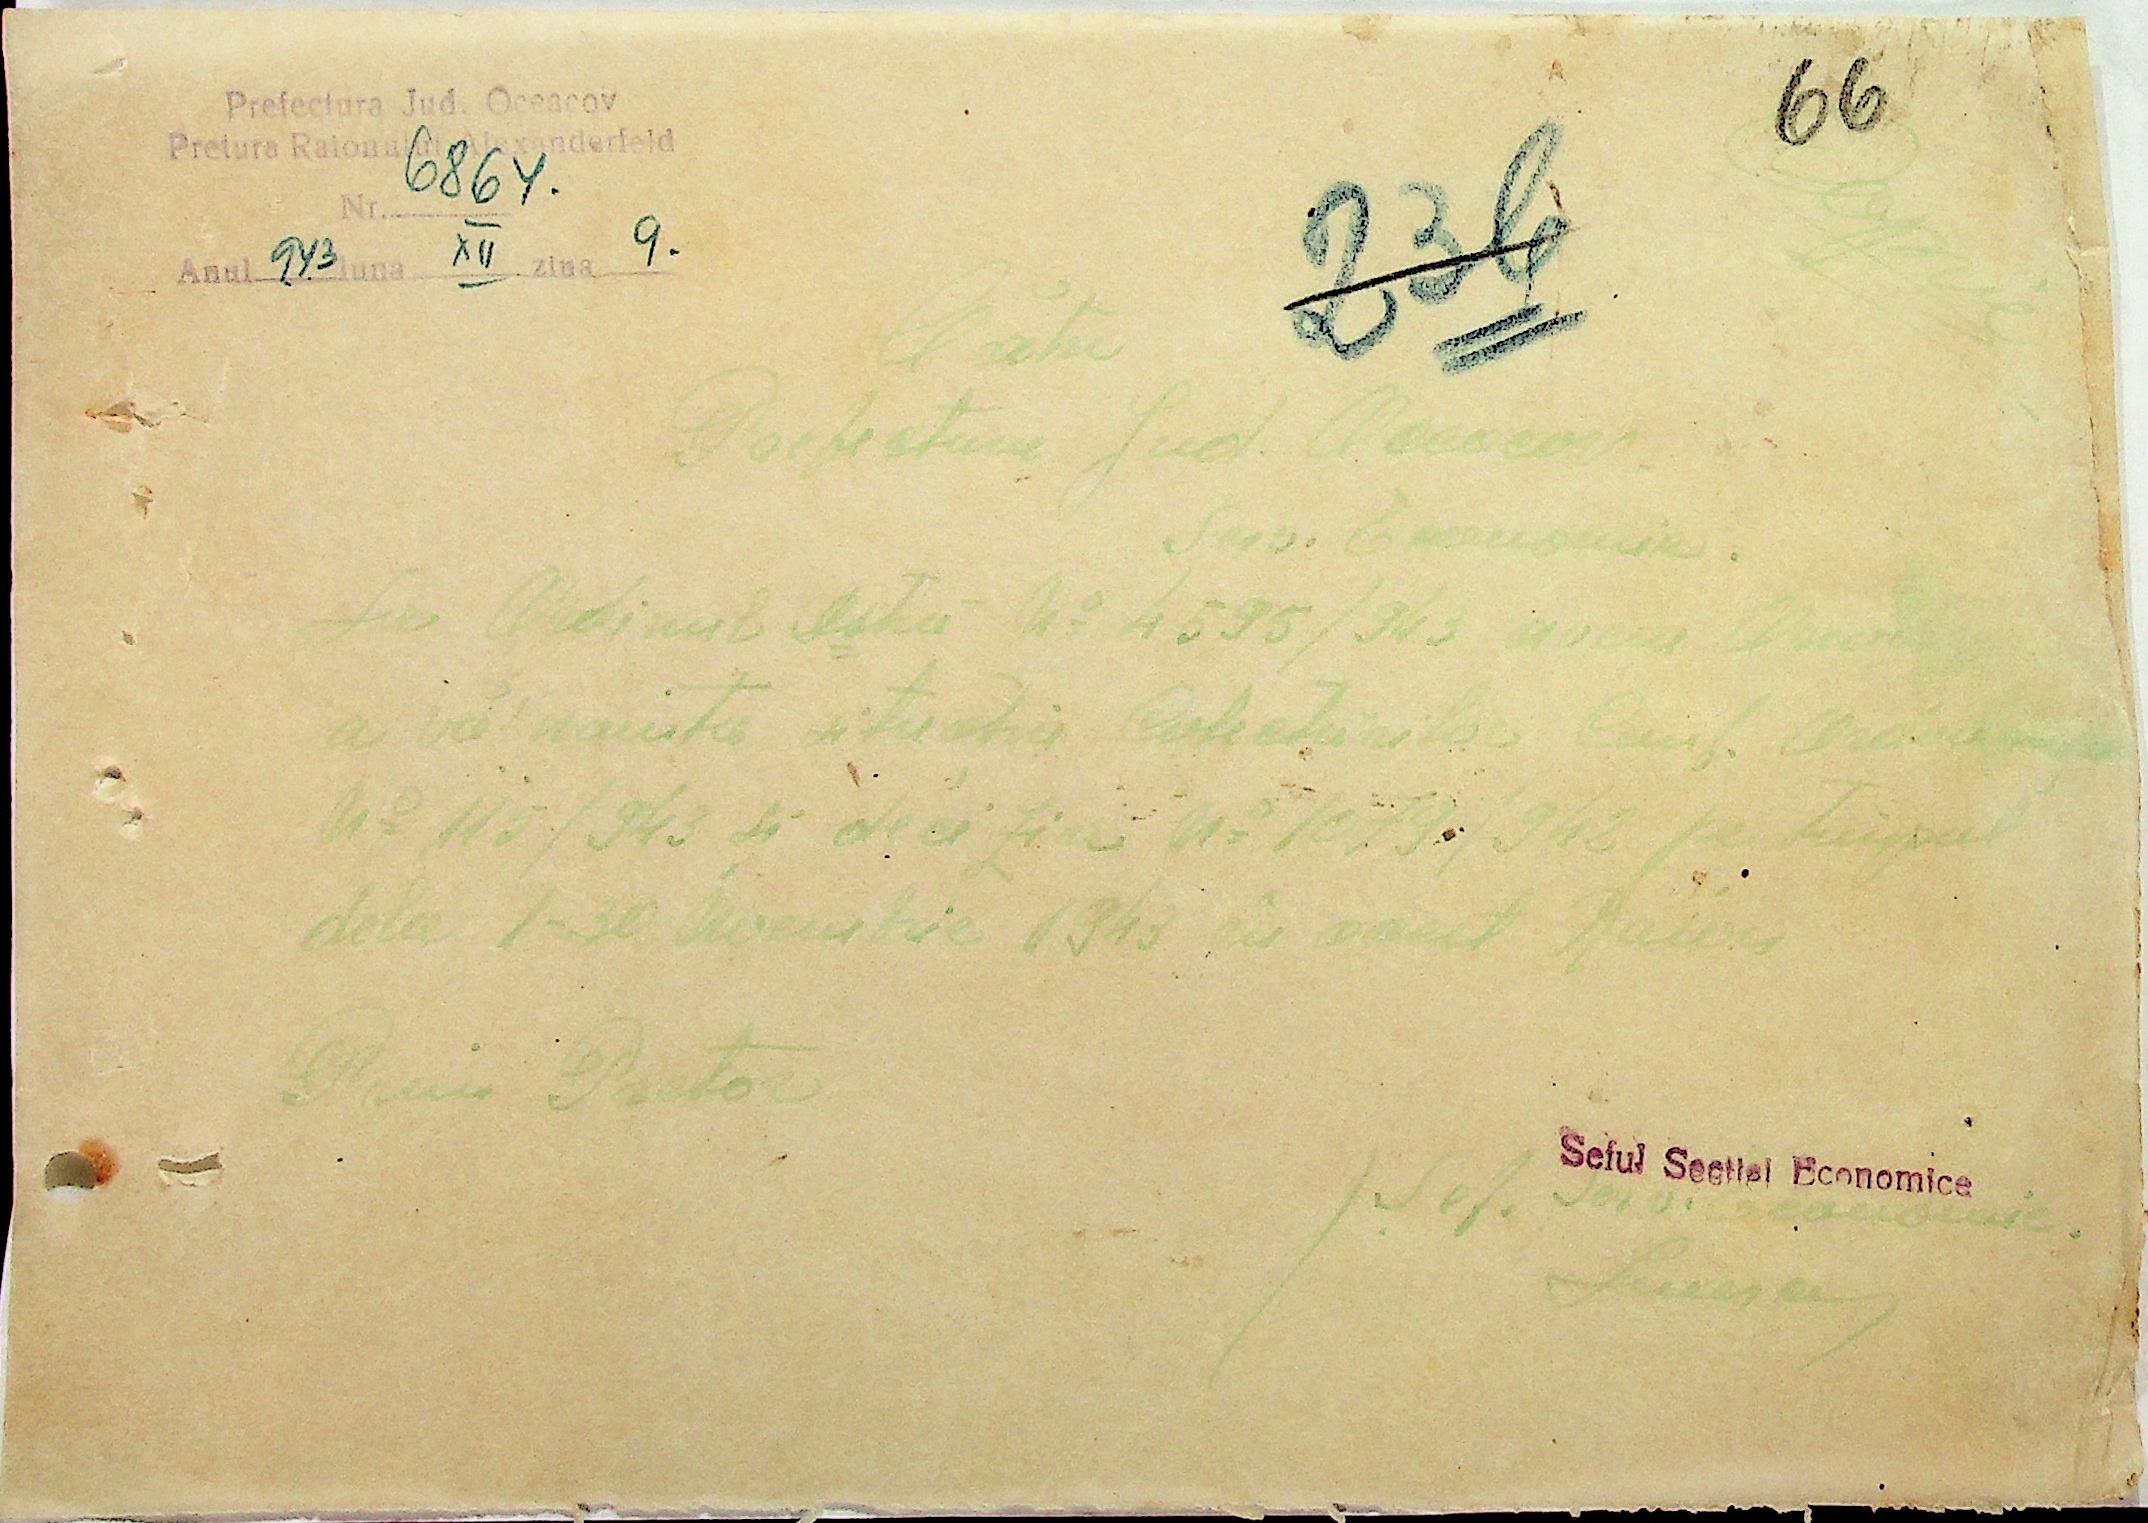 Prefectura Jud. Oceacov
Pretura Raionului Alexanderfeld
Nr. 6864.
Anul 943 luna XII ziua 9.
66
234
Către
Prefectura Jud. Oceacov
Serv. Economic.
La Ordinul Dstră No 4595/943 avem Onoare
a vă înainta situația Colectărilor Conf. Ordonanței
No 115/943 și decizia No /942 pe timpul
dela 1-30 Noembrie 1943 în acest Raion
Prim Pretor
Seful Sectiei Economice
Șef. Serv. Economic.